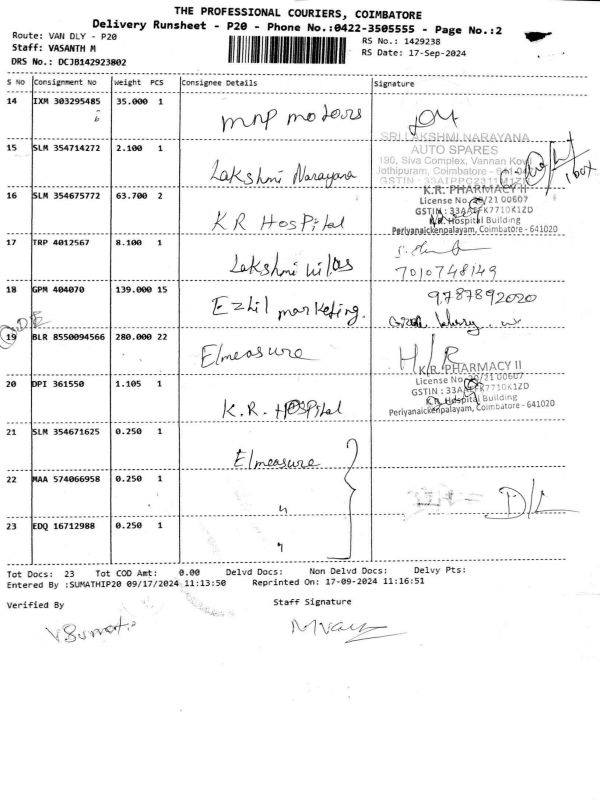 THE PROFESSIONAL COURIERS, COIMBATORE
Delivery Runsheet - P20 - Phone No.:0422-3505555 - Page No.:2
Route: VAN DLY - P20
RS No.: 1429238
Staff: VASANTH M
RS Date: 17-Sep-2024
DRS No.: DCJB142923802
S No Consignment No Weight PCS Consignee Details Signature
14 IXM 303295485 35.000 1 mnp motors
SRI LAKSHMI NARAYANA
15 SLM 354714272 2.100 1 Lakshmi Narayana
AUTO SPARES
190, Siva Complex, Vannan Kovil
Jothipuram, Coimbatore - 641 047
1 box
16 SLM 354675772 63.700 2 KR HOSPital
K.R. PHARMACY II
License No. 20/21 00607
K.R. Hospital Building
Periyanaickenpalayam, Coimbatore - 641020
17 TRP 4012567 8.100 1 Lakshmi vilas
7010748149
18 GPM 404070 139.000 15 Ezhil marketing.
9787892020
19 BLR 8550094566 280.000 22 Elmeasure
H/R
20 DPI 361550 1.105 1 K.R. HOSPital
K.R. PHARMACY II
License No. 20/21 00607
K.R. Hospital Building
Periyanaickenpalayam, Coimbatore - 641020
21 SLM 354671625 0.250 1 Elmeasure
22 MAA 574066958 0.250 1 "
D/L
23 EDQ 16712988 0.250 1 "
Tot Docs: 23 Tot COD Amt: 0.00 Delvd Docs: Non Delvd Docs: Delvy Pts:
Entered By :SUMATHIP20 09/17/2024 11:13:50 Reprinted On: 17-09-2024 11:16:51
Verified By Staff Signature